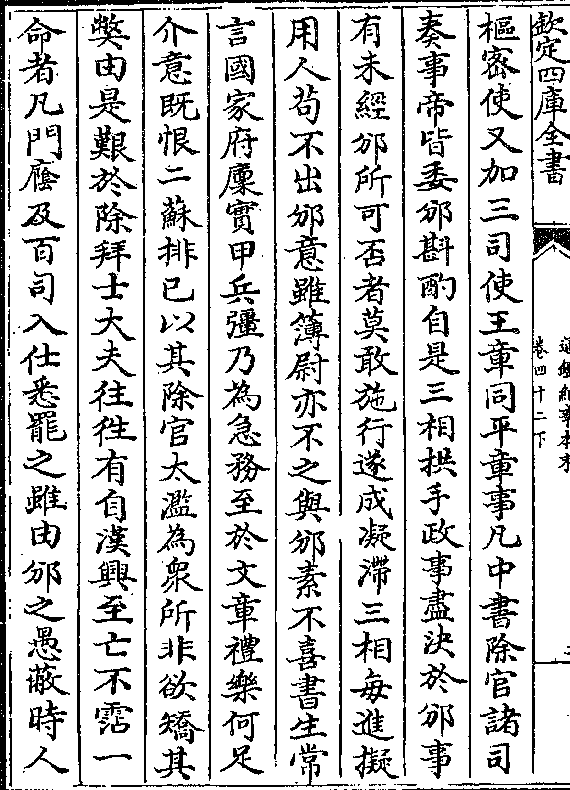 欽定四庫全書
通鑑紀事本末
卷四十二下
樞密使又加三司使王章同平章事凡中書除官諸司
奏事帝皆委邠斟酌自是三相拱手政事盡決於邠事
有未經邠所可否者莫敢施行遂成凝滯三相每進擬
用人苟不出邠意雖簿尉亦不之與邠素不喜書生常
言國家府廩實甲兵彊乃為急務至於文章禮樂何足
介意既恨二蘇排已以其除官太濫為衆所非欲矯其
弊由是艱於除拜士大夫往徃有自漢興至亡不霑一
命者凡門廕及百司入仕悉罷之雖由邠之愚蔽時人